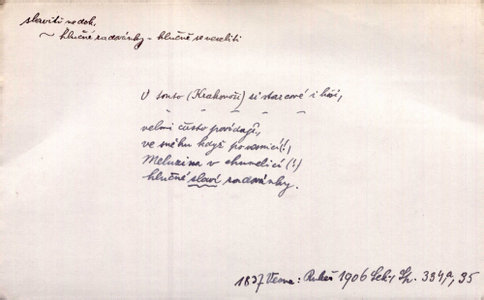 slaviti nedok.
~ hlučné radovánky - hlučně se veseliti
V tomto (Krakonoši) si starcové i hoši,
- - - - -
velmi často povídají,
ve sněhu když ponocují (!),
Meluzina v chumelici (!)
hlučné slaví radovánky.
1837 : Rubeš 1906 Sebr. Sp. 334, 35